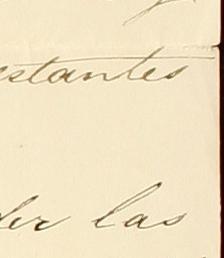 estantes
der las